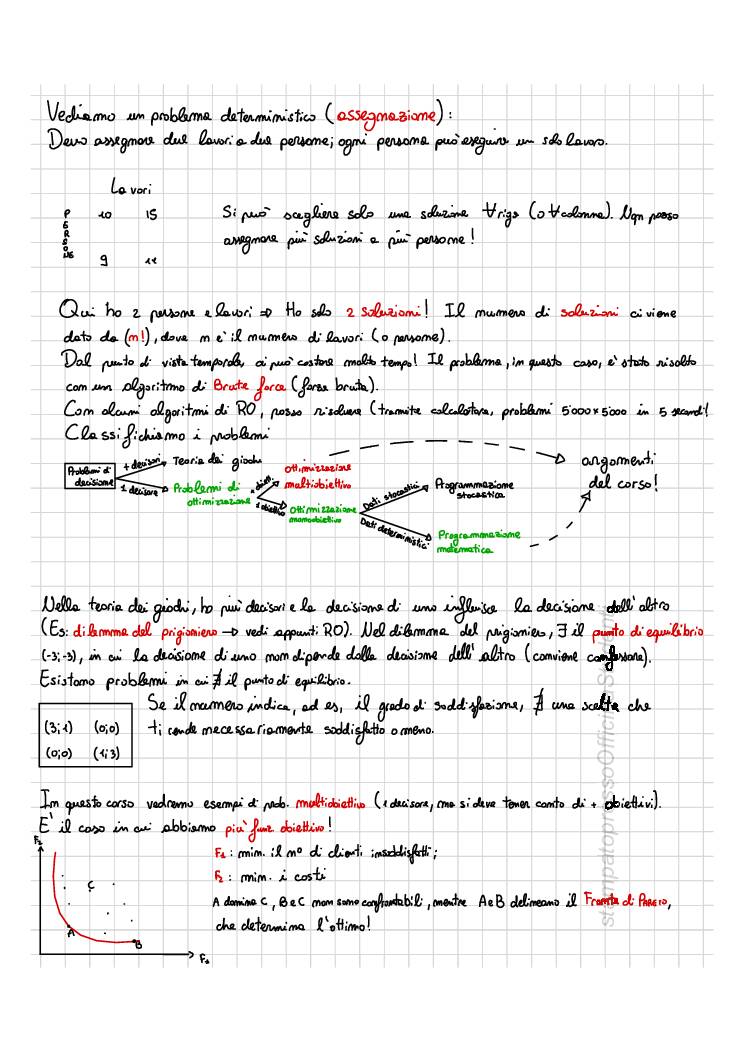 Vediamo un problema deterministico (assegnazione):
Devo assegnare due lavori a due persone; ogni persona può eseguire un solo lavoro.
Lavori
PERSONE
10 15
9 11
Si può scegliere solo una soluzione ∀riga (o ∀colonna). Non posso
assegnare più soluzioni a più persone!
Qui ho 2 persone e lavori ⇒ Ho solo 2 soluzioni! Il numero di soluzioni ci viene
dato da (n!), dove n è il numero di lavori (o persone).
Dal punto di vista temporale, ci può costare molto tempo! Il problema, in questo caso, è stato risolto
con un algoritmo di Brute force (forza bruta).
Con alcuni algoritmi di RO, posso risolvere (tramite calcolatore, problemi 5'000x5'000 in 5 secondi!
Classifichiamo i problemi
Problemi di
decisione
+ decisori
Teoria dei giochi
1 decisore
Problemi di
ottimizzazione
+ obiett.
ottimizzazione
multiobiettivo
1 obiettivo
Ottimizzazione
monoobiettivo
Dati stocastici
Programmazione
stocastica
Dati deterministici
Programmazione
matematica
argomenti
del corso!
Nella teoria dei giochi, ho più decisori e la decisione di uno influisce la decisione dell'altro
(Es: dilemma del prigioniero → vedi appunti RO). Nel dilemma del prigioniero, ∃ il punto di equilibrio
(-3;-3), in cui la decisione di uno non dipende dalla decisione dell'altro (conviene confessare).
Esistono problemi in cui ∄ il punto di equilibrio.
(3;1) (0;0)
(0;0) (1;3)
Se il numero indica, ad es, il grado di soddisfazione, ∄ una scelta che
ti rende necessariamente soddisfatto o meno.
In questo corso vedremo esempi di prob. multiobiettivo (1 decisore, ma si deve tener conto di + obiettivi).
E' il caso in cui abbiamo più funz obiettivo!
F2
C
A
B
F1
F1: min. il n° di clienti insoddisfatti;
F2: min. i costi
A domina C, B e C non sono confrontabili, mentre A e B delineano il Fronte di PARETO,
che determina l'ottimo!
stampatopressoOfficin